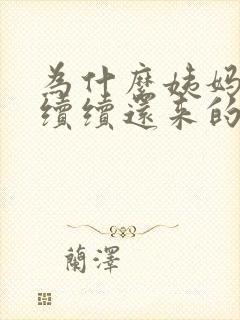 為什麼姨媽
續續還來的
蘭澤